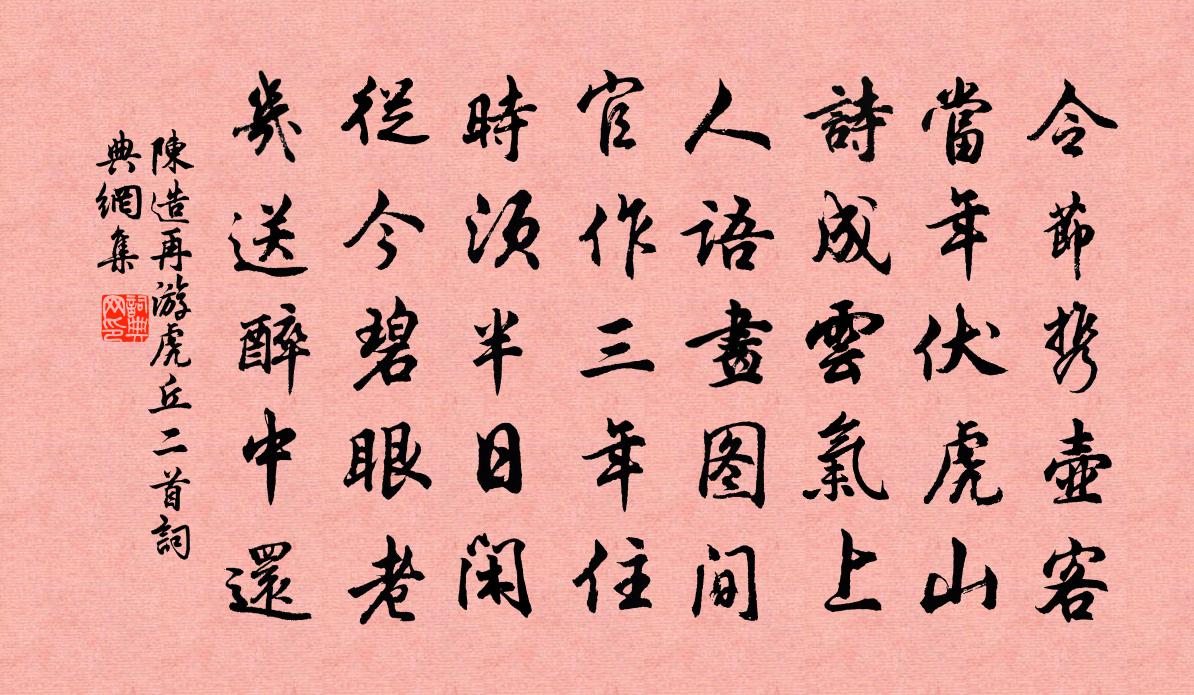 令節携壺客
當年伏虎山
詩成雲氣上
人語畫图間
官作三年住
時須半日閑
從今碧眼老
幾送醉中還
陳造再游虎丘二首詞
典網集
詞典
网印